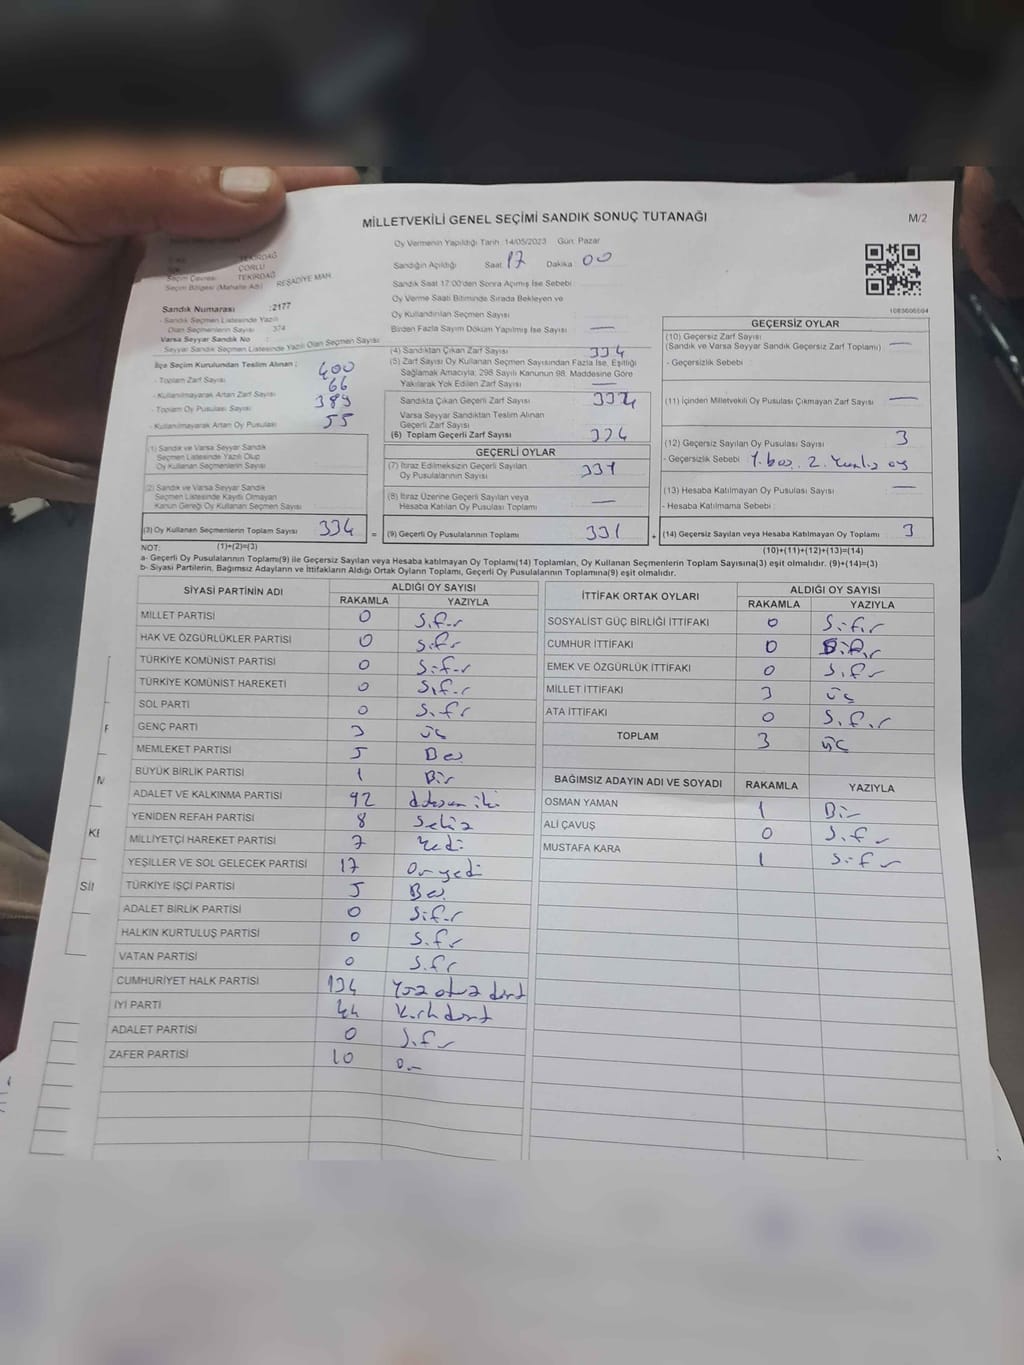 MİLLETVEKİLİ GENEL SEÇİMİ SANDIK SONUÇ TUTANAĞI
M/2
TEKİRDAĞ
ÇORLU
Seçim Çevresi TEKİRDAĞ
Seçim Bölgesi (Mahalle Adı) REŞADİYE MAH.
Sandık Numarası :2177
- Sandık Seçmen Listesinde Yazılı
Olan Seçmenlerin Sayısı 374
Varsa Seyyar Sandık No :
- Seyyar Sandık Seçmen Listesinde Yazılı Olan Seçmen Sayısı
İlçe Seçim Kurulundan Teslim Alınan ; 400
- Toplam Zarf Sayısı
- Kullanılmayarak Artan Zarf Sayısı 66
- Toplam Oy Pusulası Sayısı 389
- Kullanılmayarak Artan Oy Pusulası 55
(1) Sandık ve Varsa Seyyar Sandık
Seçmen Listesinde Yazılı Olup
Oy Kullanan Seçmenlerin Sayısı
(2) Sandık ve Varsa Seyyar Sandık
Seçmen Listesinde Kaydı Olmayan
Kanun Gereği Oy Kullanan Seçmen Sayısı
(3) Oy Kullanan Seçmenlerin Toplam Sayısı 334
(1)+(2)=(3)
Oy Vermenin Yapıldığı Tarih 14/05/2023 Gün: Pazar
Sandığın Açıldığı Saat 17 Dakika 00
Sandık Saat 17:00'den Sonra Açılmış İse Sebebi
Oy Verme Saati Bitiminde Sırada Bekleyen ve
Oy Kullandırılan Seçmen Sayısı
Birden Fazla Sayım Döküm Yapılmış İse Sayısı —
(4) Sandıktan Çıkan Zarf Sayısı 334
(5) Zarf Sayısı Oy Kullanan Seçmen Sayısından Fazla İse, Eşitliği
Sağlamak Amacıyla, 298 Sayılı Kanunun 98. Maddesine Göre
Yakılarak Yok Edilen Zarf Sayısı —
Sandıkta Çıkan Geçerli Zarf Sayısı 334
Varsa Seyyar Sandıktan Teslim Alınan
Geçerli Zarf Sayısı
(6) Toplam Geçerli Zarf Sayısı 334
GEÇERLİ OYLAR
(7) İtiraz Edilmeksizin Geçerli Sayılan
Oy Pusulasının Sayısı 331
(8) İtiraz Üzerine Geçerli Sayılan veya
Hesaba Katılan Oy Pusulası Toplamı —
= (9) Geçerli Oy Pusulalarının Toplamı 331 +
1083606594
GEÇERSİZ OYLAR
(10) Geçersiz Zarf Sayısı
(Sandık ve Varsa Seyyar Sandık Geçersiz Zarf Toplamı) —
- Geçersizlik Sebebi :
(11) İçinden Milletvekili Oy Pusulası Çıkmayan Zarf Sayısı —
(12) Geçersiz Sayılan Oy Pusulası Sayısı 3
- Geçersizlik Sebebi 1. boş 2. oy
(13) Hesaba Katılmayan Oy Pusulası Sayısı —
- Hesaba Katılmama Sebebi :
(14) Geçersiz Sayılan veya Hesaba Katılmayan Oy Toplamı 3
(10)+(11)+(12)+(13)=(14)
NOT:
a- Geçerli Oy Pusulalarının Toplamı(9) ile Geçersiz Sayılan veya Hesaba katılmayan Oy Toplamı(14) Toplamları, Oy Kullanan Seçmenlerin Toplam Sayısına(3) eşit olmalıdır. (9)+(14)=(3)
b- Siyasi Partilerin, Bağımsız Adayların ve İttifakların Aldığı Ortak Oyların Toplamı, Geçerli Oy Pusulalarının Toplamına(9) eşit olmalıdır.
SİYASİ PARTİNİN ADI ALDIĞI OY SAYISI
RAKAMLA YAZIYLA
MİLLET PARTİSİ 0 Sıfır
HAK VE ÖZGÜRLÜKLER PARTİSİ 0 Sıfır
TÜRKİYE KOMÜNİST PARTİSİ 0 Sıfır
TÜRKİYE KOMÜNİST HAREKETİ 0 Sıfır
SOL PARTİ 0 Sıfır
GENÇ PARTİ 3 üç
MEMLEKET PARTİSİ 5 Beş
BÜYÜK BİRLİK PARTİSİ 1 Bir
ADALET VE KALKINMA PARTİSİ 92 doksan iki
YENİDEN REFAH PARTİSİ 8 Sekiz
MİLLİYETÇİ HAREKET PARTİSİ 7 Yedi
YEŞİLLER VE SOL GELECEK PARTİSİ 17 Onyedi
TÜRKİYE İŞÇİ PARTİSİ 5 Beş
ADALET BİRLİK PARTİSİ 0 Sıfır
HALKIN KURTULUŞ PARTİSİ 0 Sıfır
VATAN PARTİSİ 0 Sıfır
CUMHURİYET HALK PARTİSİ 134 Yüz otuz dört
İYİ PARTİ 44 Kırkdört
ADALET PARTİSİ 0 Sıfır
ZAFER PARTİSİ 10 On
İTTİFAK ORTAK OYLARI ALDIĞI OY SAYISI
RAKAMLA YAZIYLA
SOSYALİST GÜÇ BİRLİĞİ İTTİFAKI 0 Sıfır
CUMHUR İTTİFAKI 0 Sıfır
EMEK VE ÖZGÜRLÜK İTTİFAKI 0 Sıfır
MİLLET İTTİFAKI 3 üç
ATA İTTİFAKI 0 Sıfır
TOPLAM 3 üç
BAĞIMSIZ ADAYIN ADI VE SOYADI RAKAMLA YAZIYLA
OSMAN YAMAN 1 Bir
ALİ ÇAVUŞ 0 Sıfır
MUSTAFA KARA 1 Sıfır